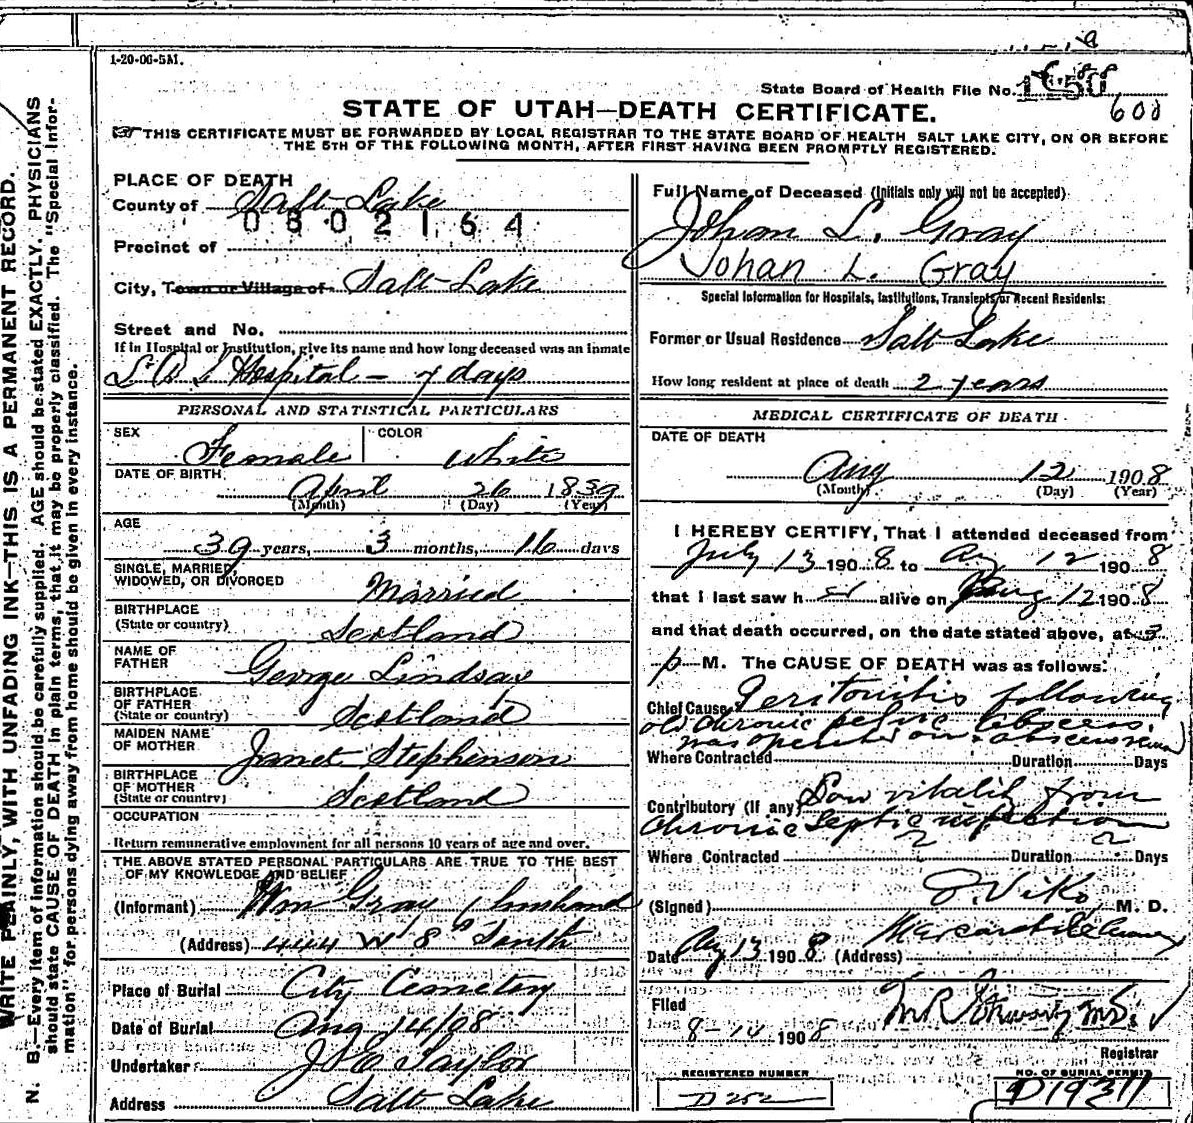 1-20-06-5M.
State Board of Health File No.
600
STATE OF UTAH—DEATH CERTIFICATE.
THIS CERTIFICATE MUST BE FORWARDED BY LOCAL REGISTRAR TO THE STATE BOARD OF HEALTH SALT LAKE CITY, ON OR BEFORE
THE 5TH OF THE FOLLOWING MONTH, AFTER FIRST HAVING BEEN PROMPTLY REGISTERED.
WRITE PLAINLY, WITH UNFADING INK—THIS IS A PERMANENT RECORD.
N. B.—Every item of information should be carefully supplied. AGE should be stated EXACTLY. PHYSICIANS
should state CAUSE OF DEATH in plain terms, that it may be properly classified. The "Special Infor-
mation" for persons dying away from home should be given in every instance.
PLACE OF DEATH
County of Salt Lake
0802164
Precinct of
City, Town or Village of Salt Lake
Street and No.
If in Hospital or Institution, give its name and how long deceased was an inmate
L D S Hospital — 7 days
PERSONAL AND STATISTICAL PARTICULARS
SEX Female COLOR White
DATE OF BIRTH
April 26 1839
(Month) (Day) (Year)
AGE
39 years, 3 months, 16 days
SINGLE, MARRIED,
WIDOWED, OR DIVORCED Married
BIRTHPLACE
(State or country) Scotland
NAME OF
FATHER George Lindsay
BIRTHPLACE
OF FATHER
(State or country) Scotland
MAIDEN NAME
OF MOTHER Janet Stephenson
BIRTHPLACE
OF MOTHER
(State or country) Scotland
OCCUPATION
Return remunerative employment for all persons 10 years of age and over.
THE ABOVE STATED PERSONAL PARTICULARS ARE TRUE TO THE BEST
OF MY KNOWLEDGE AND BELIEF
(Informant) Wm Gray husband
(Address) 444 W 8th South
Place of Burial City Cemetery
Date of Burial Aug 14/08
Undertaker Taylor
Address Salt Lake
Full Name of Deceased (Initials only will not be accepted)
Johan L. Gray
Johan L. Gray
Special Information for Hospitals, Institutions, Transients or Recent Residents:
Former or Usual Residence Salt Lake
How long resident at place of death 2 years
MEDICAL CERTIFICATE OF DEATH
DATE OF DEATH
Aug 12 1908
(Month) (Day) (Year)
I HEREBY CERTIFY, That I attended deceased from
July 13 1908 to Aug 12 1908
that I last saw her alive on Aug 12 1908
and that death occurred, on the date stated above, at 3
p M. The CAUSE OF DEATH was as follows:
Chief Cause Peritonitis following
old chronic pelvic abscess.
was operated on abscess
Where Contracted Duration Days
Contributory (if any) Low vitality from
chronic septic infection
Where Contracted ? Duration ? Days
(Signed) E. Viko M. D.
Date Aug 13 1908 (Address)
Filed
8-14 1908
Registrar
REGISTERED NUMBER
D 252
NO. OF BURIAL PERMIT
D19311